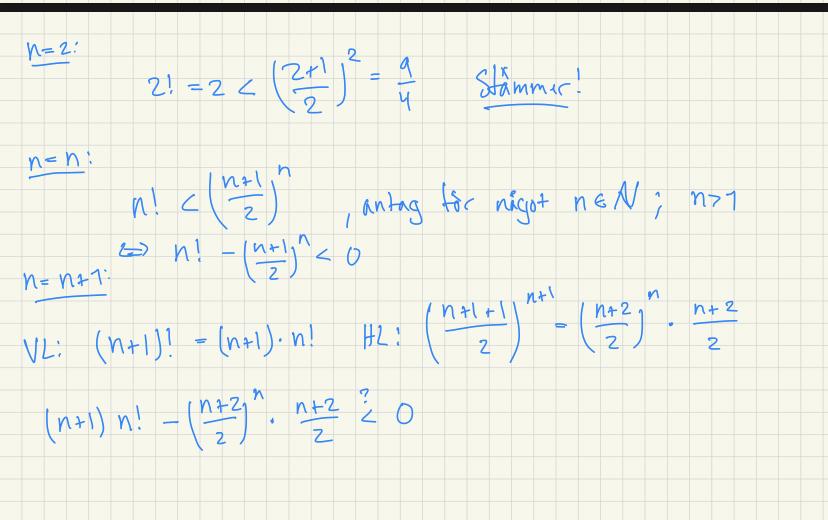 n=2:
2! = 2 < ((2+1)/2)^2 = 9/4 Stämmer!
n=n:
n! < ((n+1)/2)^n , antag för något n∈N ; n>1
⇔ n! - ((n+1)/2)^n < 0
n=n+1:
VL: (n+1)! = (n+1)·n! HL: ((n+1+1)/2)^(n+1) = ((n+2)/2)^n · (n+2)/2
(n+1) n! - ((n+2)/2)^n · (n+2)/2 <? 0